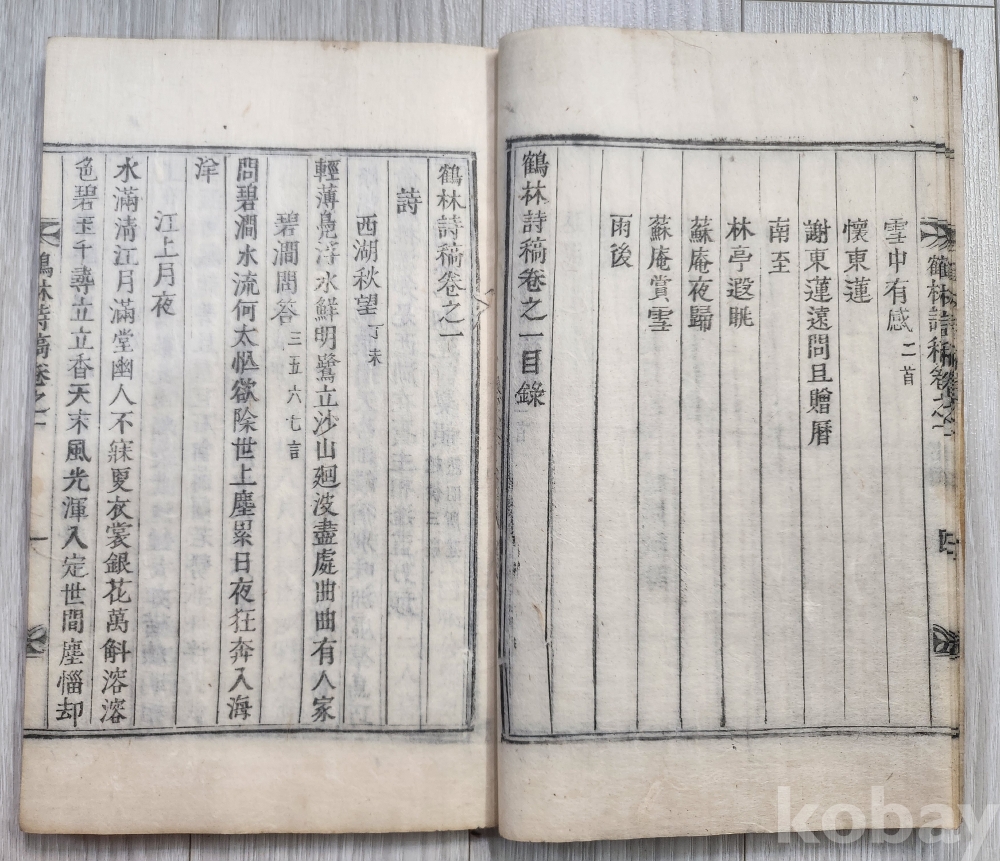 雪中有感 二首
懷東蓮
謝東蓮遠問且贈曆
南至
林亭遐眺
蘇庵夜歸
蘇庵賞雪
雨後
鶴林詩稿卷之一目錄
鶴林詩稿卷之一
詩
西湖秋望 丁未
輕薄鳧浮水鮮明鷺立沙山廻波盡處曲曲有人家
碧澗問答 三五六七言
問碧澗水流何太忙欲除世上塵累日夜狂奔入海
津
江上月夜
水滿清江月滿堂幽人不寐夏衣裳銀花萬斛溶溶
色碧玉千尋立立香天末風光渾入定世間塵惱却
鶴林詩稿卷之一
一
kobay